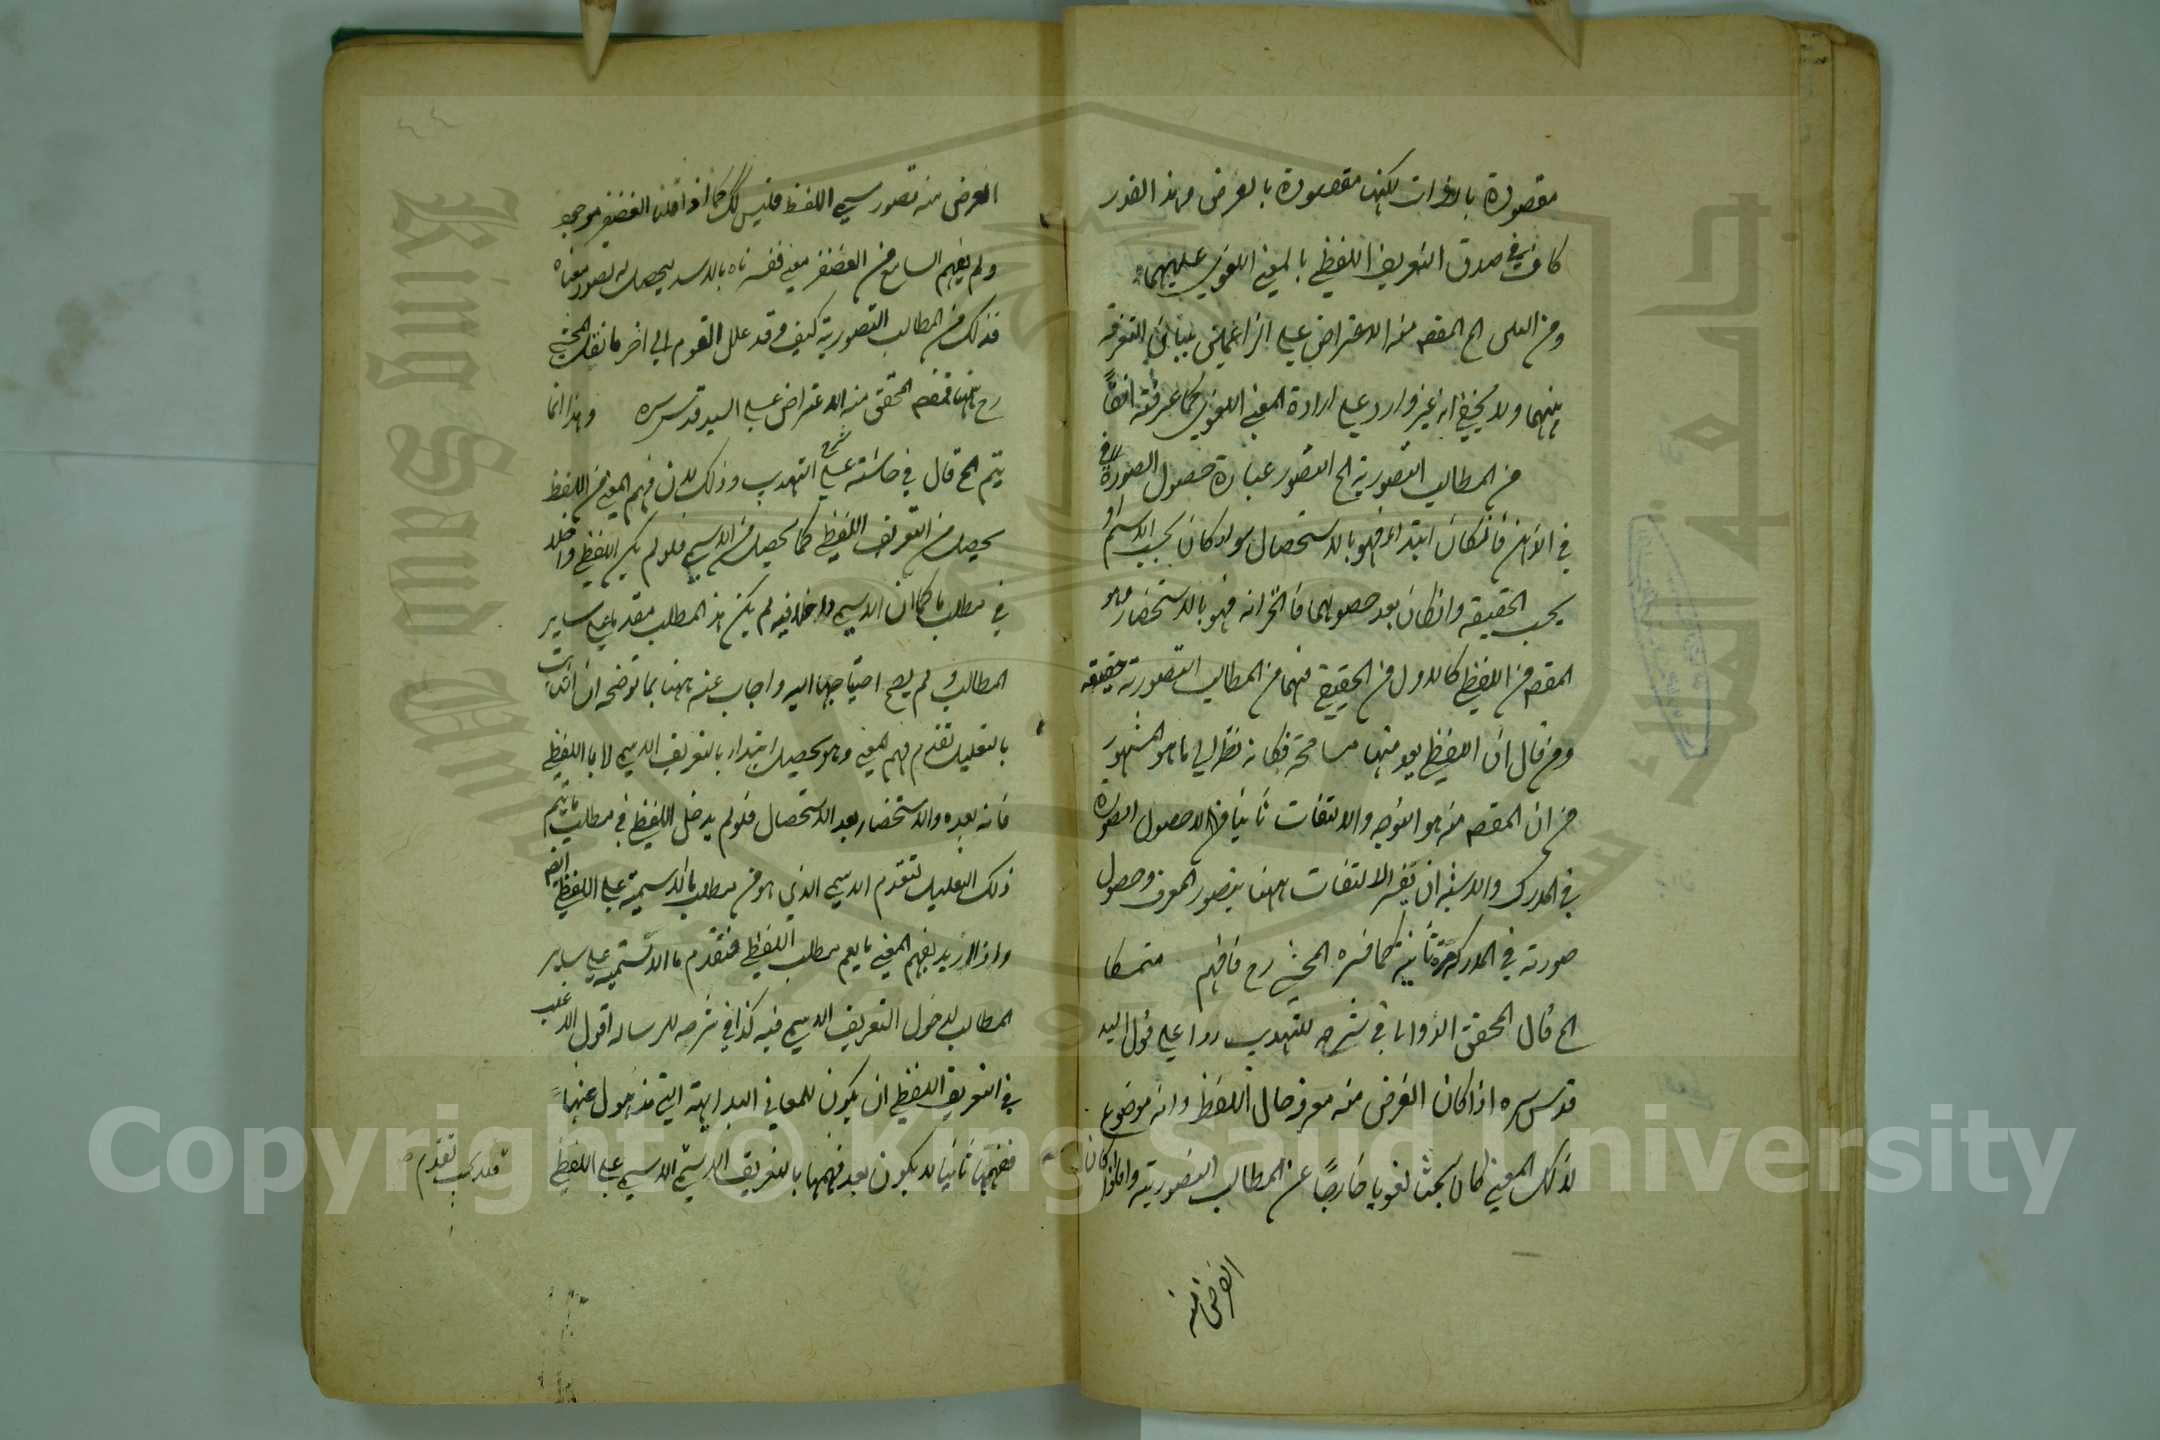 مقصودة بالذات لكنها مقصودة بالعرض وهذا القدر
كاف في صدق التعريف اللفظي بالمعنى اللغوي عليهما
ومن الـ الخ المقصـ منه الاعتراض على بيان التفرقة
بينهما ولا يخفى انه غير وارد على ارادة المعنى اللغوي كما عرفته انفا
من المطالب التصورية الخ التصور عبارة حصول الصورة
في الذهن فانكان ابتداء فهو بالاستحصال سواء كان بحسب الاسم او
بحسب الحقيقة وانكان بعد حصولها فالخزانة فهو بالاستحضار وهو
المقصـ من اللفظي كالاول من الحقيقي فهما من المطالب التصورية حقيقة
ومن قال ان اللفظي يعد منها مسامحة فكانه نظر الى ما هو المشهور
من ان المقصـ منه هو التوجه والالتفات ثانيا الحصول الصورة
في المدرك والاشبه ان تفسر الالتفات ههنا بتصور المعرف وحصول
صورته في المدركة مرة ثانية كما فسره المحشي رح فافهم متمسكا
الخ قال المحقق الدواني في شرحه للتهذيب ردا على قول السيد
قدس سره اذا كان الغرض منه معرفة حال اللفظ وانه موضوع
لذلك المعنى كان بحثا لغويا خارجا عن المطالب التصورية واما اذا كان
الغرض منه
الغرض منه تصور معنى اللفظ فليس كذلك كما اذا قلنا الغضنفر موجود
ولم يفهم السامع من الغضنفر معنى ففسرناه بالاسد ليحصل له تصور معناه
فذلك من المطالب التصورية كيف وقد علل القوم الى اخر ما نقله المحشي
رح ههنا فمقصـ المحقق منه الاعتراض على السيد قدس سره وهذا انما
يتم الخ قال في حاشيته على شرح التهذيب وذلك لان فهم المعنى من اللفظ
يحصل من التعريف اللفظي كما يحصل من الاسمي فلو لم يكن اللفظي داخلا
في مطلب ما كما ان الاسمي داخل فيه لم يكن هذا المطلب مقدما على ساير
المطالب ولم يصح احتياجها اليه واجاب عنه ههنا بما توضيحه ان الثابت
بالتعليل تقدم فهم المعنى وهو يحصل ابتداء بالتعريف الاسمي لا باللفظي
فانه بعده والاستحضار بعد الاستحصال فلو لم يدخل اللفظي في مطلب ما يتم
ذلك التعليل لتقدم الاسمي الذي هو من مطلب ما الاسمية على اللفظي ايضـ
واذا اريد بفهم المعنى ما يعم مطلب اللفظي فتقدم ما الاسمية على ساير
المطالب لدخول التعريف الاسمي فيه كذا في شرحه للرسالة اقول الاغلب
في التعريف اللفظي ان يكون للمعاني البديهية التي ذهول عنها
ففهمها ثانيا لا يكون بعد فهمها بالتعريف الاسمي على اللفظي
فلا يجب تقدم